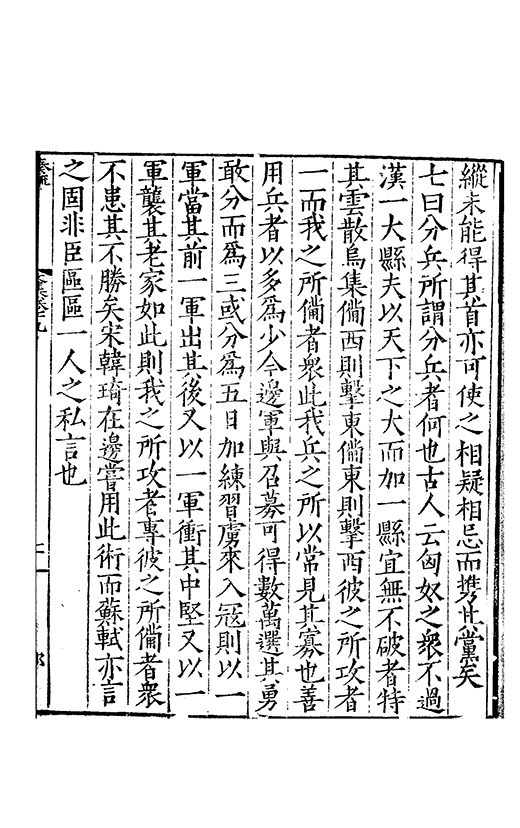 縱未能得其首亦可使之相疑相忌而攜其黨矣
七曰分兵所謂分兵者何也古人云匈奴之衆不過
漢一大縣夫以天下之大而加一縣宜無不破者特
其雲散烏集僃西則擊東僃東則擊西彼之所攻者
一而我之所僃者衆此我兵之所以常見其寡也善
用兵者以多為少今邊軍與召募可得數萬選其勇
敢分而爲三或分爲五日加練習虜來入冦則以一
軍當其前一軍出其後又以一軍衝其中堅又以一
軍襲其老家如此則我之所攻者專彼之所僃者衆
不患其不勝矣宋韓琦在邊嘗用此術而蘇軾亦言
之固非臣區區一人之私言也